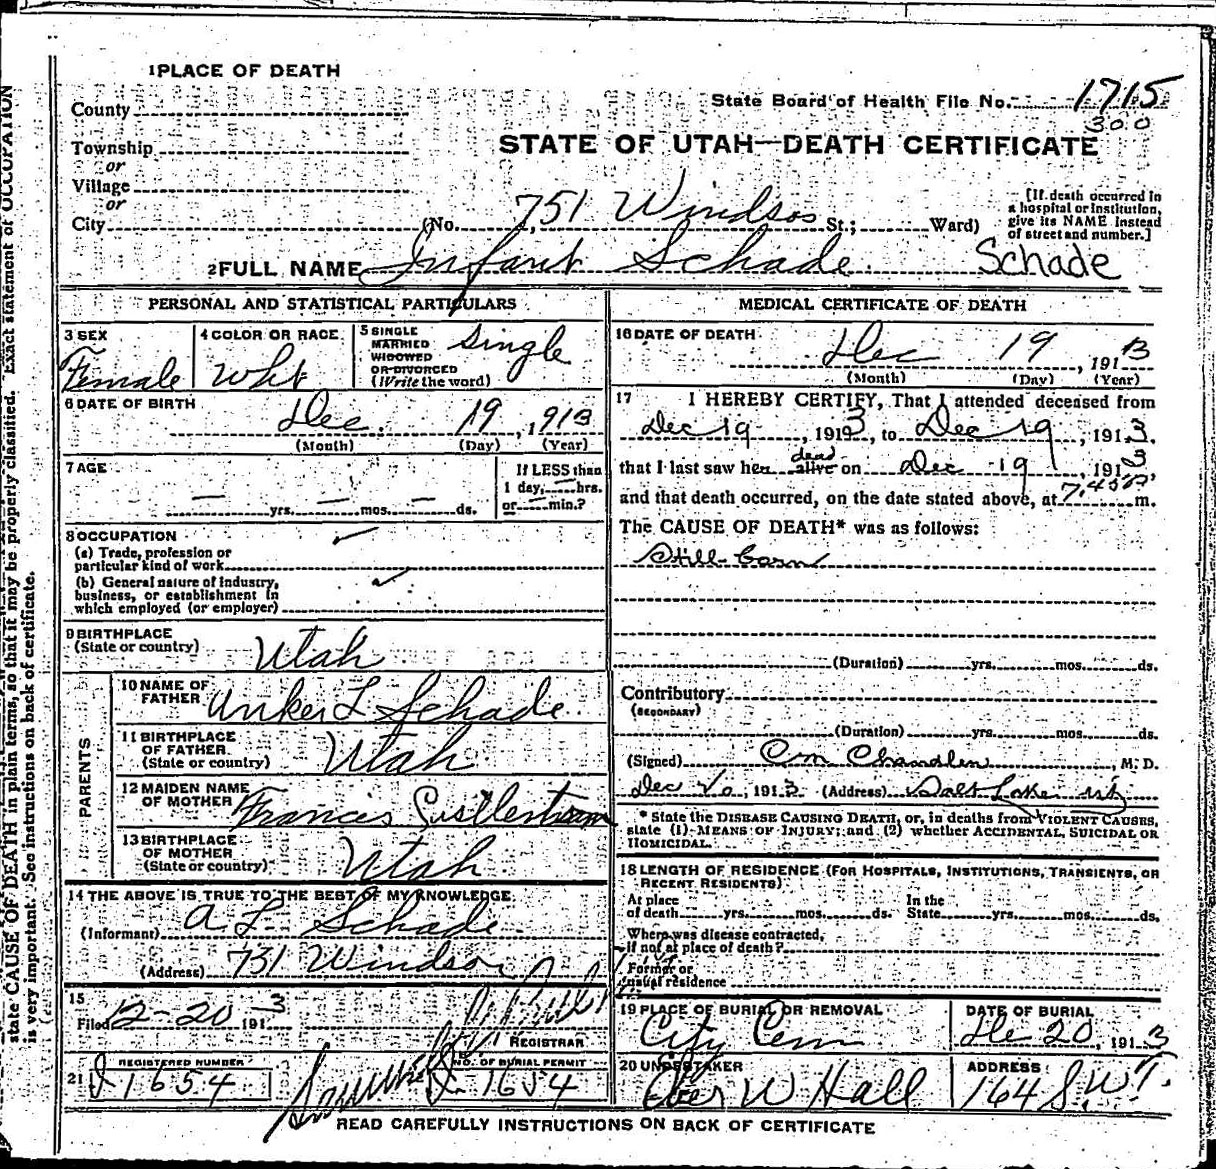 1 PLACE OF DEATH
State Board of Health File No. 1715
300
County
Township
or
Village
or
City
STATE OF UTAH—DEATH CERTIFICATE
(No. 751 Windsor St.; Ward)
[If death occurred in
a hospital or institution,
give its NAME instead
of street and number.]
2 FULL NAME Infant Schade Schade
PERSONAL AND STATISTICAL PARTICULARS
3 SEX
Female
4 COLOR OR RACE
Wht
5 SINGLE
MARRIED
WIDOWED
OR DIVORCED
(Write the word)
Single
6 DATE OF BIRTH
Dec. 19, 1913
(Month) (Day) (Year)
7 AGE
— yrs. — mos. — ds.
If LESS than
1 day, — hrs.
or — min.?
8 OCCUPATION
(a) Trade, profession or
particular kind of work
(b) General nature of industry,
business, or establishment in
which employed (or employer)
9 BIRTHPLACE
(State or country)
Utah
PARENTS
10 NAME OF
FATHER
Anker L Schade
11 BIRTHPLACE
OF FATHER
(State or country)
Utah
12 MAIDEN NAME
OF MOTHER
Francis
13 BIRTHPLACE
OF MOTHER
(State or country)
Utah
14 THE ABOVE IS TRUE TO THE BEST OF MY KNOWLEDGE
(Informant) A L Schade
(Address) 731 Windsor
15
Filed 12-20 1913
REGISTRAR
21
REGISTERED NUMBER
J 1654
NO. OF BURIAL PERMIT
J-1654
MEDICAL CERTIFICATE OF DEATH
16 DATE OF DEATH
Dec 19, 1913
(Month) (Day) (Year)
17 I HEREBY CERTIFY, That I attended deceased from
Dec 19, 1913, to Dec 19, 1913.
that I last saw her dead alive on Dec 19, 1913,
and that death occurred, on the date stated above, at 7.45 P. m.
The CAUSE OF DEATH* was as follows:
Still-born
(Duration) yrs. mos. ds.
Contributory
(SECONDARY)
(Duration) yrs. mos. ds.
(Signed) C M Chandler, M. D.
Dec 20, 1913 (Address) Salt Lake
* State the DISEASE CAUSING DEATH, or, in deaths from VIOLENT CAUSES,
state (1) MEANS OF INJURY; and (2) whether ACCIDENTAL, SUICIDAL OR
HOMICIDAL.
18 LENGTH OF RESIDENCE (FOR HOSPITALS, INSTITUTIONS, TRANSIENTS, OR
RECENT RESIDENTS)
At place
of death yrs. mos. ds.
In the
State yrs. mos. ds.
Where was disease contracted,
if not at place of death?
Former or
usual residence
19 PLACE OF BURIAL OR REMOVAL
City Cem
DATE OF BURIAL
De 20, 1913
20 UNDERTAKER
Eber W Hall
ADDRESS
164 S. W T.
READ CAREFULLY INSTRUCTIONS ON BACK OF CERTIFICATE
state CAUSE OF DEATH in plain terms, so that it may be properly classified. Exact statement of OCCUPATION
is very important. See instructions on back of certificate.